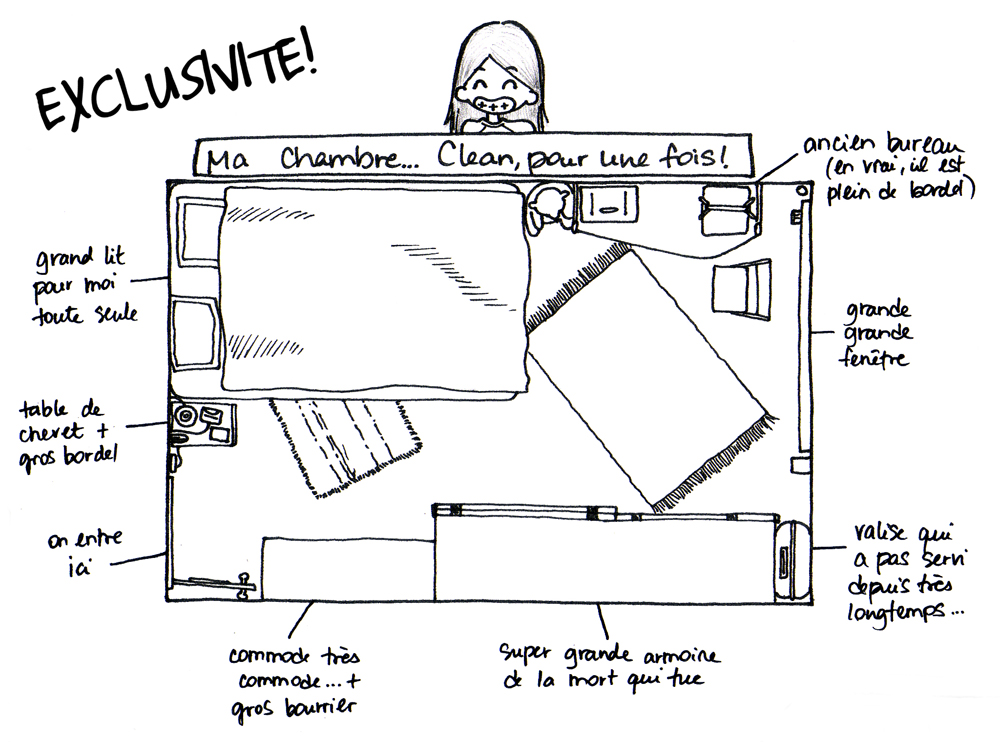 EXCLUSIVITE!
Ma chambre... Clean, pour une fois!
ancien bureau
(en vrai, il est
plein de bordel)
grand lit
pour moi
toute seule
grande
grande
fenêtre
table de
chevet +
gros bordel
on entre
ici
valise qui
a pas servi
depuis très
longtemps...
commode très
commode... +
gros bourrier
super grande armoire
de la mort qui tue